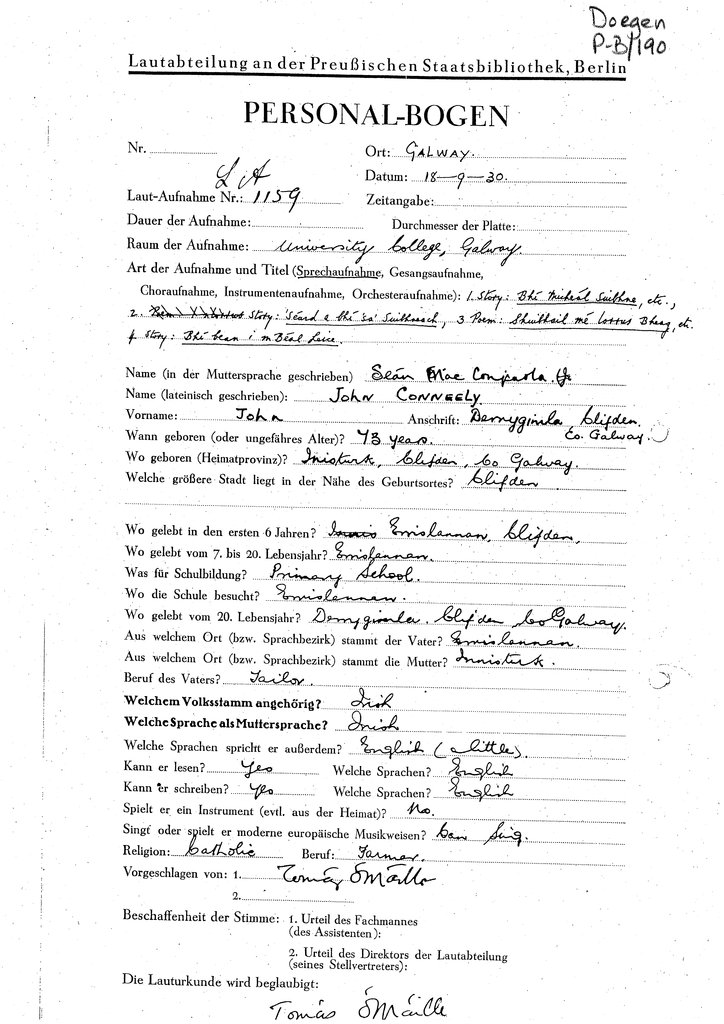 Doegen
P-B/190
Lautabteilung an der Preußischen Staatsbibliothek, Berlin
PERSONAL-BOGEN
Nr. Ort: GALWAY.
LA Datum: 18-9-30.
Laut-Aufnahme Nr.: 1159 Zeitangabe:
Dauer der Aufnahme: Durchmesser der Platte:
Raum der Aufnahme: University College, Galway.
Art der Aufnahme und Titel (Sprechaufnahme, Gesangsaufnahme,
Choraufnahme, Instrumentenaufnahme, Orchesteraufnahme): 1. Story: Bhí Micheál Suibhne, etc.,
2. Story: 'Séard a bhí sa' Suibhneach, 3 Poem: Shiubhail mé Iorrus Bheag, etc.
4. Story: Bhí bean i mBéal Leice.
Name (in der Muttersprache geschrieben) Seán Mac
Name (lateinisch geschrieben): JOHN CONNEELY.
Vorname: John Anschrift: Derrygimla, Clifden.
Co. Galway.
Wann geboren (oder ungefähres Alter)? 73 years.
Wo geboren (Heimatprovinz)? Inisturk, Clifden, Co Galway.
Welche größere Stadt liegt in der Nähe des Geburtsortes? Clifden
Wo gelebt in den ersten 6 Jahren? Emislannan, Clifden.
Wo gelebt vom 7. bis 20. Lebensjahr? Emislannan.
Was für Schulbildung? Primary School.
Wo die Schule besucht? Emislannan.
Wo gelebt vom 20. Lebensjahr? Derrygimla. Clifden, Co Galway.
Aus welchem Ort (bzw. Sprachbezirk) stammt der Vater? Emislannan.
Aus welchem Ort (bzw. Sprachbezirk) stammt die Mutter? Innisturk.
Beruf des Vaters? Tailor.
Welchem Volksstamm angehörig? Irish
Welche Sprache als Muttersprache? Irish
Welche Sprachen spricht er außerdem? English (a little).
Kann er lesen? Yes Welche Sprachen? English
Kann er schreiben? Yes Welche Sprachen? English
Spielt er ein Instrument (evtl. aus der Heimat)? No.
Singt oder spielt er moderne europäische Musikweisen? Can Sing.
Religion: Catholic Beruf: Farmer.
Vorgeschlagen von: 1. Tomás Ó Máille
2.
Beschaffenheit der Stimme: 1. Urteil des Fachmannes
(des Assistenten):
2. Urteil des Direktors der Lautabteilung
(seines Stellvertreters):
Die Lauturkunde wird beglaubigt:
Tomás Ó Máille